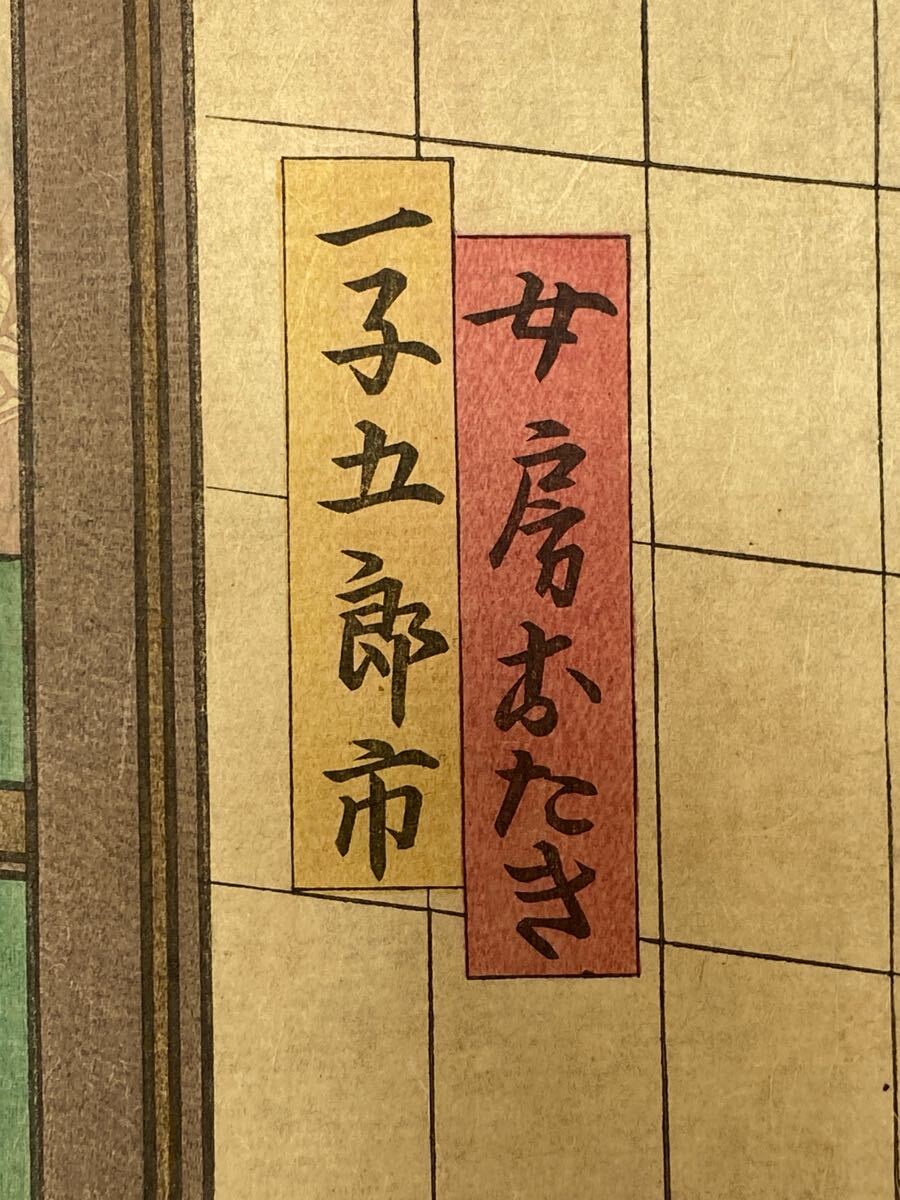 女房おたき
一子五郎市